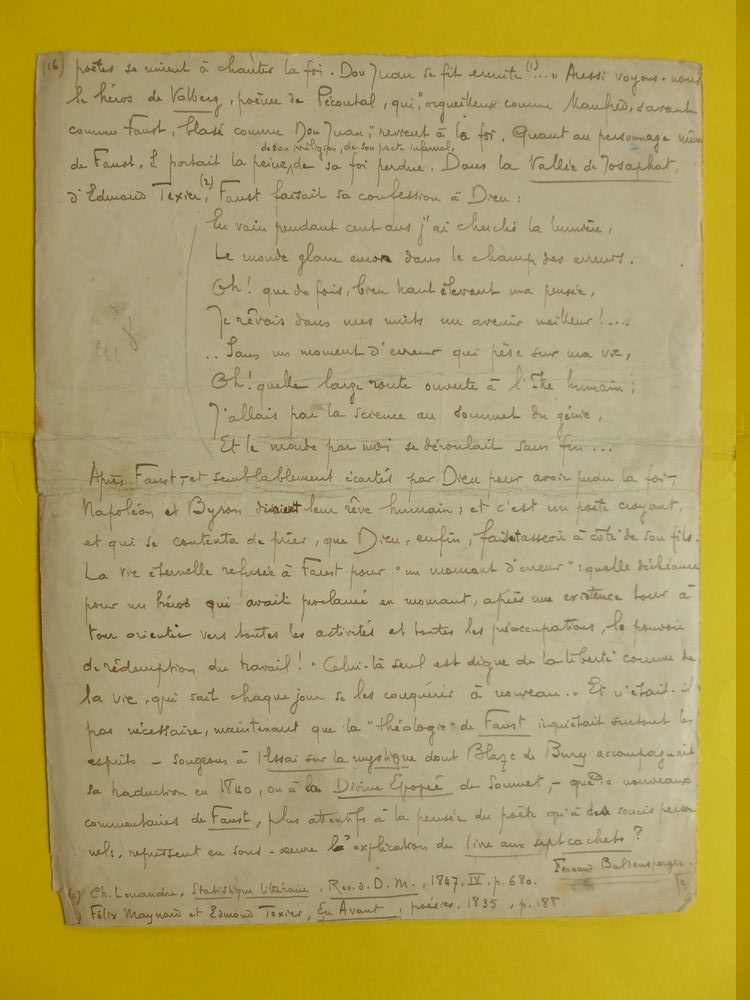 (16) poètes se mirent à chanter la foi. Don Juan se fit ermite (1)..." Aussi voyons-nous
le héros de Valberg, poème de Pécontal, qui, "orgueilleux comme Manfred, savant
comme Faust, blasé comme Don Juan," revient à la foi. Quant au personnage même
de son irréligion, de son pacte infernal,
de Faust, il portait la peine, de sa foi perdue. Dans la Vallée de Josaphat,
d'Edmond Texier (2), Faust faisait sa confession à Dieu :
En vain pendant cent ans j'ai cherché la lumière,
Le monde glane encore dans le champ des erreurs.
Oh! que de fois, bien haut élevant ma pensée,
Je rêvais dans mes nuits un avenir meilleur!....
.. Sans un moment d'erreur qui pèse sur ma vie,
Oh! quelle large route ouverte à l'Être humain;
J'allais par la science au sommet du génie,
Et le monde par moi se déroulait sans fin...
Après Faust, - et semblablement écartés par Dieu pour avoir perdu la foi -,
Napoléon et Byron disaient leur rêve humain; et c'est un poète croyant,
et qui se contenta de prier, que Dieu, enfin, faisait asseoir à côté de son fils.
La vie éternelle refusée à Faust pour "un moment d'erreur" : quelle déchéance
pour un héros qui avait proclamé en mourant, après une existence tour à
tour orientée vers toutes les activités et toutes les préoccupations, le pouvoir
de rédemption du travail! "Celui-là seul est digne de la liberté comme de
la vie, qui sait chaque jour se les conquérir à nouveau.." Et n'était-il
pas nécessaire, maintenant que la "théologie" de Faust inquiétait surtout les
esprits - songeons à l'Essai sur la mystique dont Blaze de Bury accompagnait
sa traduction en 1840, ou à la Divine Epopée de Soumet, - que de nouveaux
commentaires de Faust, plus attentifs à la pensée du poète qu'à des soucis person
nels, reprissent en sous-œuvre l'explication du livre aux sept cachets?
Fernand Baldensperger.
(1) Ch. Louandre, Statistique littéraire, Rev. d. D. M., 1847, IV, p. 680.
(2) Félix Maynard et Edmond Texier, En Avant, poésies, 1835, p. 188.